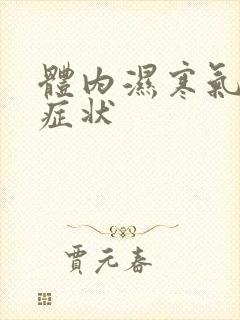 體內濕寒氣
症状
賈元春